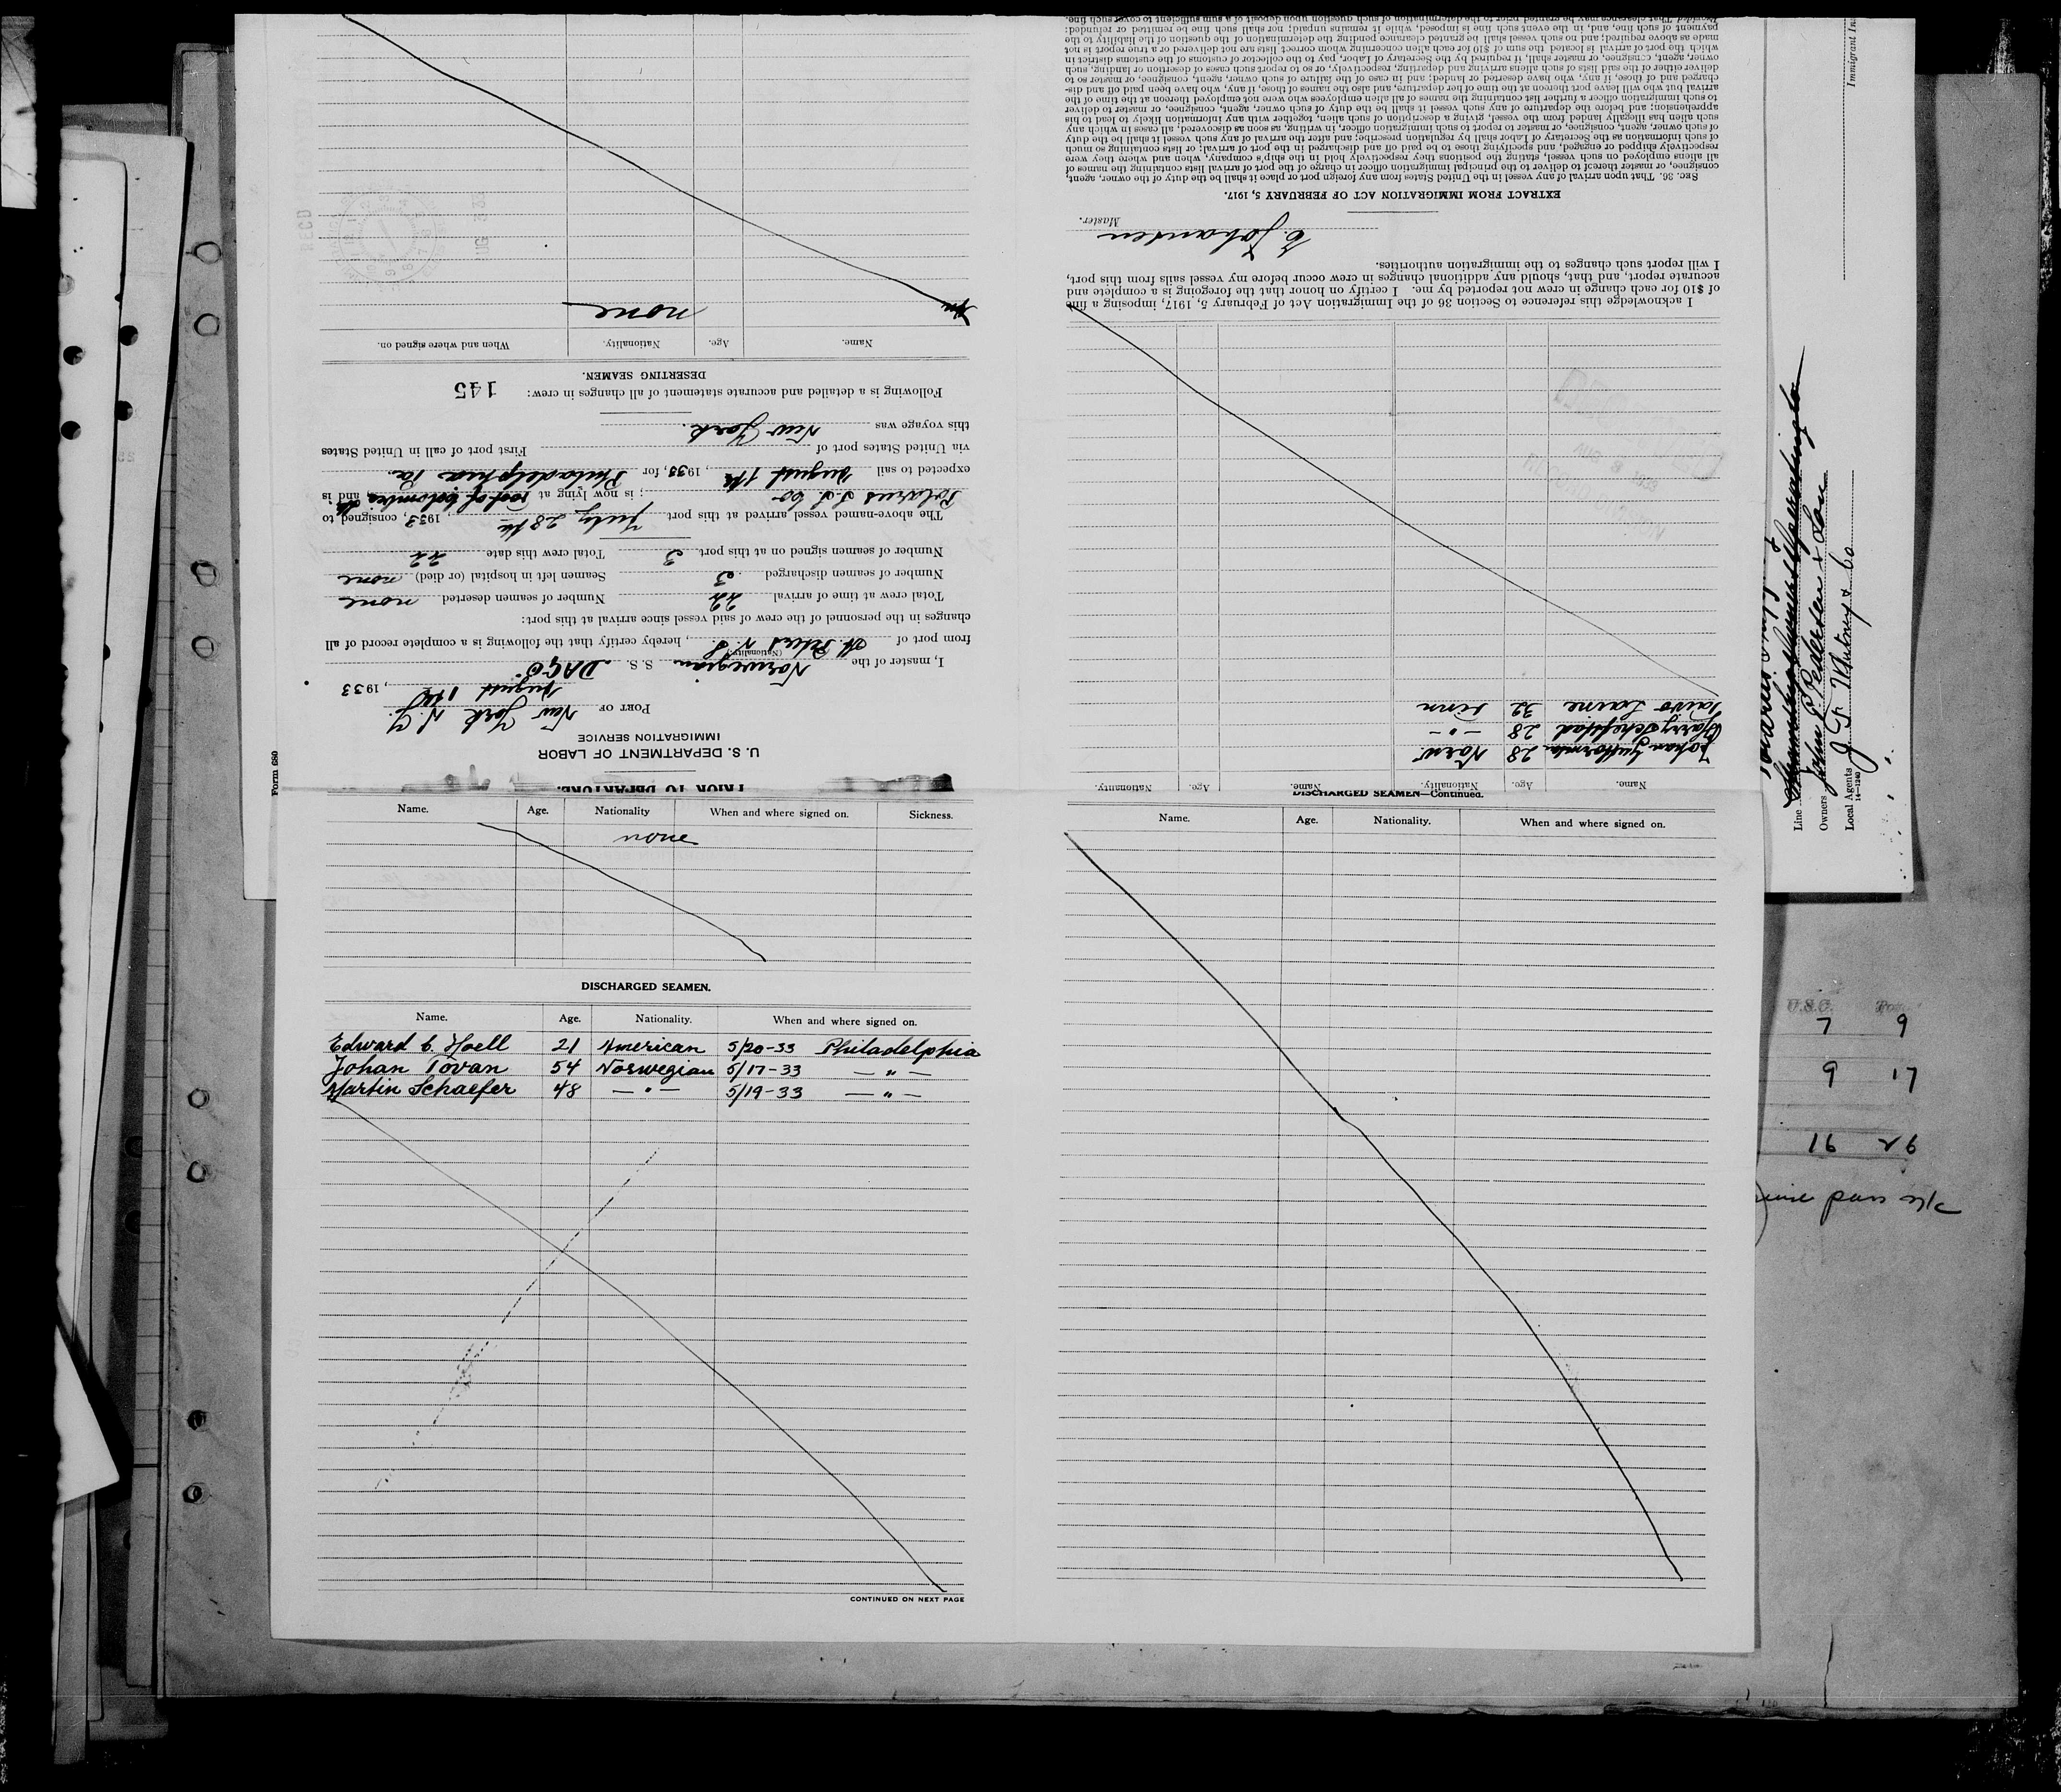 Form 680
PRIOR TO DEPARTURE.
U. S. DEPARTMENT OF LABOR
IMMIGRATION SERVICE
PORT OF New York N.Y.
August 1st, 1933
I, master of the Norwegian S. S. DAGÖ
(Nationality)
from port of St. Johns N. F., hereby certify that the following is a complete record of all
changes in the personnel of the crew of said vessel since arrival at this port:
Total crew at time of arrival 22 Number of seamen deserted none
Number of seamen discharged 3 Seamen left in hospital (or died) none
Number of seamen signed on at this port. 3 Total crew this date 22
The above-named vessel arrived at this port July 28th, 1933, consigned to
Polarus S.S. Co; is now lying at Foot of Columbia St., and is
expected to sail August 1st, 1933, for Philadelphia Pa.
via United States port of First port of call in United States
this voyage was New York.
Following is a detailed and accurate statement of all changes in crew: 145
DESERTING SEAMEN.
Name. Age. Nationality. When and where signed on.
none
Name. Age. Nationality When and where signed on. Sickness.
none
DISCHARGED SEAMEN.
Name. Age. Nationality. When and where signed on.
Edward C. Hoell 21 American 5/20-33 Philadelphia
Johan Tovan 54 Norwegian 5/17-33 — " —
Martin Schaefer 48 — " — 5/19-33 — " —
CONTINUED ON NEXT PAGE
DISCHARGED SEAMEN—Continued.
Name. Age. Nationality. When and where signed on.
Name. Age. Nationality. Name. Age. Nationality.
Johan Guttormsen 28 Norw
Harry Schefstad 28 - " -
Taivo Laine 32 Finn
I acknowledge this reference to Section 36 of the Immigration Act of February 5, 1917, imposing a fine
of $10 for each change in crew not reported by me. I certify on honor that the foregoing is a complete and
accurate report, and that, should any additional changes in crew occur before my vessel sails from this port,
I will report such changes to the immigration authorities.
E. Johansen
Master.
EXTRACT FROM IMMIGRATION ACT OF FEBRUARY 5, 1917.
SEC. 36. That upon arrival of any vessel in the United States from any foreign port or place it shall be the duty of the owner, agent,
consignee, or master thereof to deliver to the principal immigration officer in charge of the port of arrival lists containing the names of
all aliens employed on such vessel, stating the positions they respectively hold in the ship's company, when and where they were
respectively shipped or engaged, and specifying those to be paid off and discharged in the port of arrival; or lists containing so much
of such information as the Secretary of Labor shall by regulation prescribe; and after the arrival of any such vessel it shall be the duty
of such owner, agent, consignee, or master to report to such immigration officer, in writing, as soon as discovered, all cases in which any
such alien has illegally landed from the vessel, giving a description of such alien, together with any information likely to lead to his
apprehension; and before the departure of any such vessel it shall be the duty of such owner, agent, consignee, or master to deliver
to such immigration officer a further list containing the names of all alien employees who were not employed thereon at the time of the
arrival but who will leave port thereon at the time of her departure, and also the names of those, if any, who have been paid off and dis-
charged and of those, if any, who have deserted or landed; and in case of the failure of such owner, agent, consignee, or master so to
deliver either of the said lists of such aliens arriving and departing, respectively, or so to report such cases of desertion or landing, such
owner, agent, consignee, or master, shall, if required by the Secretary of Labor, pay to the collector of customs of the customs district in
which the port of arrival is located the sum of $10 for each alien concerning whom correct lists are not delivered or a true report is not
made as above required; and no such vessel shall be granted clearance pending the determination of the question of the liability to the
payment of such fine, and, in the event such fine is imposed, while it remains unpaid; nor shall such fine be remitted or refunded:
Provided That clearance may be granted prior to the determination of such question upon deposit of a sum sufficient to cover such fine.
Line
Owners John P Pedersen & Son
Local Agents J F Whitney & Co
14—1240
Immigrant In
U.S.C. Pass
7 9
9 17
16 26
pass